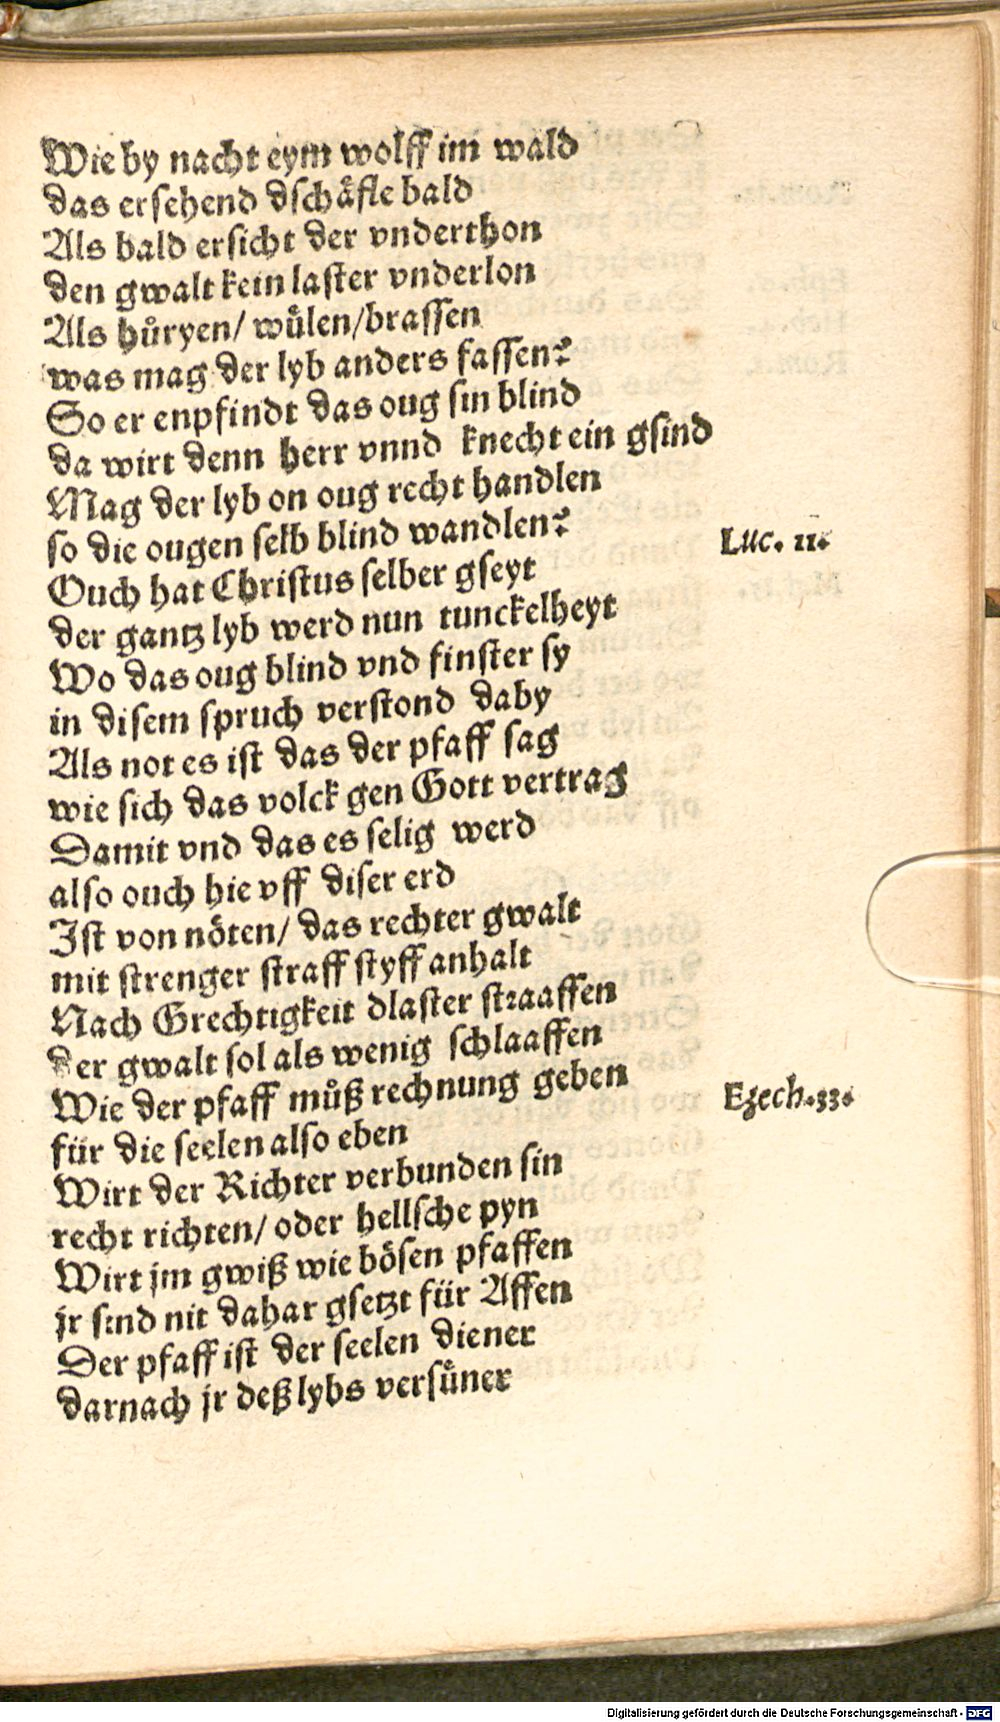 Wie by nacht eym wolff im wald
das ersehend dschåfle bald
Als bald ersicht der vnderthon
den gwalt kein laster vnderlon
Als hůryen/ wůlen/brassen
was mag der lyb anders fassen?
So er enpfindt das oug sin blind
da wirt denn herr vnnd knecht ein gsind
Mag der lyb on oug recht handlen
so die ougen selb blind wandlen?
Luc. 11.
Ouch hat Christus selber gseyt
der gantz lyb werd nun tunckelheyt
Wo das oug blind vnd finster sy
in disem spruch verstond daby
Als not es ist das der pfaff sag
wie sich das volck gen Gott vertrag
Damit vnd das es selig werd
also ouch hie vff diser erd
Ist von nöten/ das rechter gwalt
mit strenger straff styff anhalt
Nach Grechtigkeit dlaster straaffen
der gwalt sol als wenig schlaaffen
Wie der pfaff můß rechnung geben
Ezech.33.
für die seelen also eben
Wirt der Richter verbunden sin
recht richten/ oder hellsche pyn
Wirt jm gwiß wie bösen pfaffen
jr sind nit dahar gsetzt für Affen
Der pfaff ist der seelen diener
darnach jr deß lybs versůner
Digitalisierung gefördert durch die Deutsche Forschungsgemeinschaft - DFG